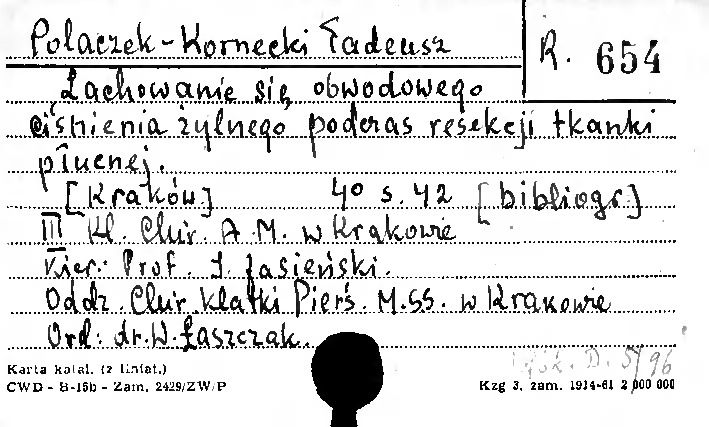 Polaczek-Kornecki Tadeusz
R. 654
Zachowanie się obwodowego
ciśnienia żylnego podczas resekcji tkanki
płucnej.
[Kraków] 4° s. 42 [bibliogr]
III Kl. Chir. A.M. w Krakowie
Kier.: Prof. J. Jasieński.
Oddz. Chir. Klatki Piers. M.SS. w Krakowie
Ord: dr. W. Łaszczak.
D. 5/96
Karta katal. (z liniat.)
CWD - B-15b - Zam. 2429/ZW/P
Kzg 3, zam. 1914-61 2 000 000